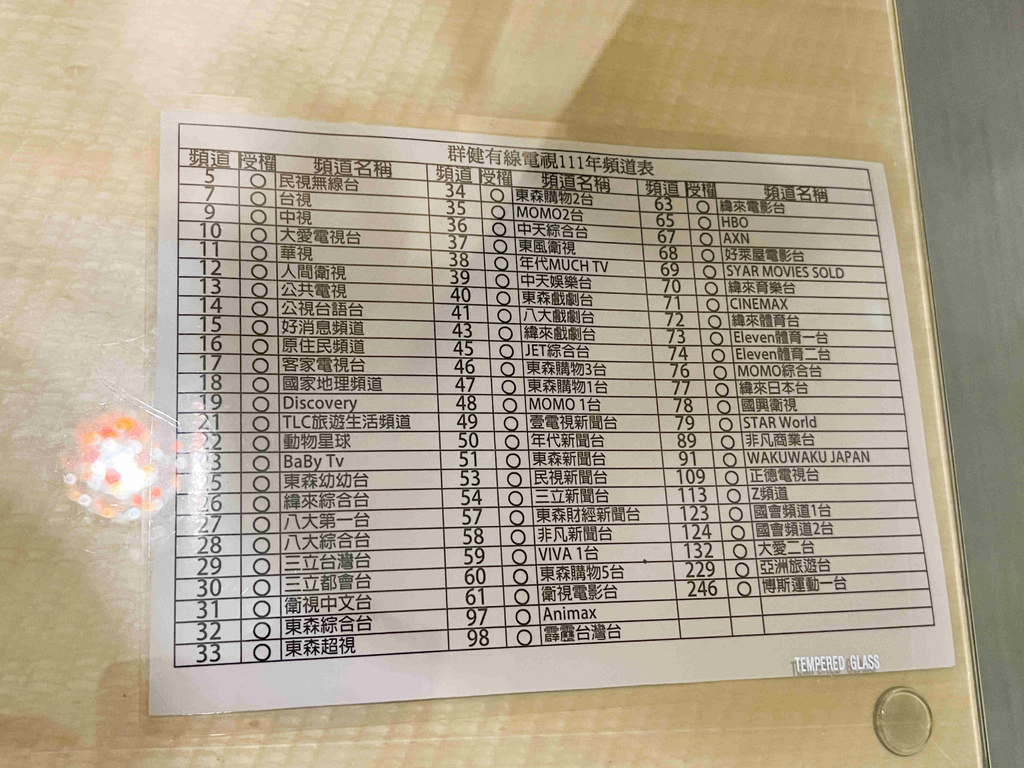 群健有線電視111年頻道表
頻道 授權 頻道名稱 頻道 授權 頻道名稱 頻道 授權 頻道名稱
5 ○ 民視無線台 34 ○ 東森購物2台 63 ○ 緯來電影台
7 ○ 台視 35 ○ MOMO2台 65 ○ HBO
9 ○ 中視 36 ○ 中天綜合台 67 ○ AXN
10 ○ 大愛電視台 37 ○ 東風衛視 68 ○ 好萊屋電影台
11 ○ 華視 38 ○ 年代MUCH TV 69 ○ SYAR MOVIES SOLD
12 ○ 人間衛視 39 ○ 中天娛樂台 70 ○ 緯來育樂台
13 ○ 公共電視 40 ○ 東森戲劇台 71 ○ CINEMAX
14 ○ 公視台語台 41 ○ 八大戲劇台 72 ○ 緯來體育台
15 ○ 好消息頻道 43 ○ 緯來戲劇台 73 ○ Eleven體育一台
16 ○ 原住民頻道 45 ○ JET綜合台 74 ○ Eleven體育二台
17 ○ 客家電視台 46 ○ 東森購物3台 76 ○ MOMO綜合台
18 ○ 國家地理頻道 47 ○ 東森購物1台 77 ○ 緯來日本台
19 ○ Discovery 48 ○ MOMO 1台 78 ○ 國興衛視
21 ○ TLC旅遊生活頻道 49 ○ 壹電視新聞台 79 ○ STAR World
22 ○ 動物星球 50 ○ 年代新聞台 89 ○ 非凡商業台
23 ○ BaBy Tv 51 ○ 東森新聞台 91 ○ WAKUWAKU JAPAN
25 ○ 東森幼幼台 53 ○ 民視新聞台 109 ○ 正德電視台
26 ○ 緯來綜合台 54 ○ 三立新聞台 113 ○ Z頻道
27 ○ 八大第一台 57 ○ 東森財經新聞台 123 ○ 國會頻道1台
28 ○ 八大綜合台 58 ○ 非凡新聞台 124 ○ 國會頻道2台
29 ○ 三立台灣台 59 ○ VIVA 1台 132 ○ 大愛二台
30 ○ 三立都會台 60 ○ 東森購物5台 229 ○ 亞洲旅遊台
31 ○ 衛視中文台 61 ○ 衛視電影台 246 ○ 博斯運動一台
32 ○ 東森綜合台 97 ○ Animax
33 ○ 東森超視 98 ○ 霹靂台灣台
TEMPERED GLASS